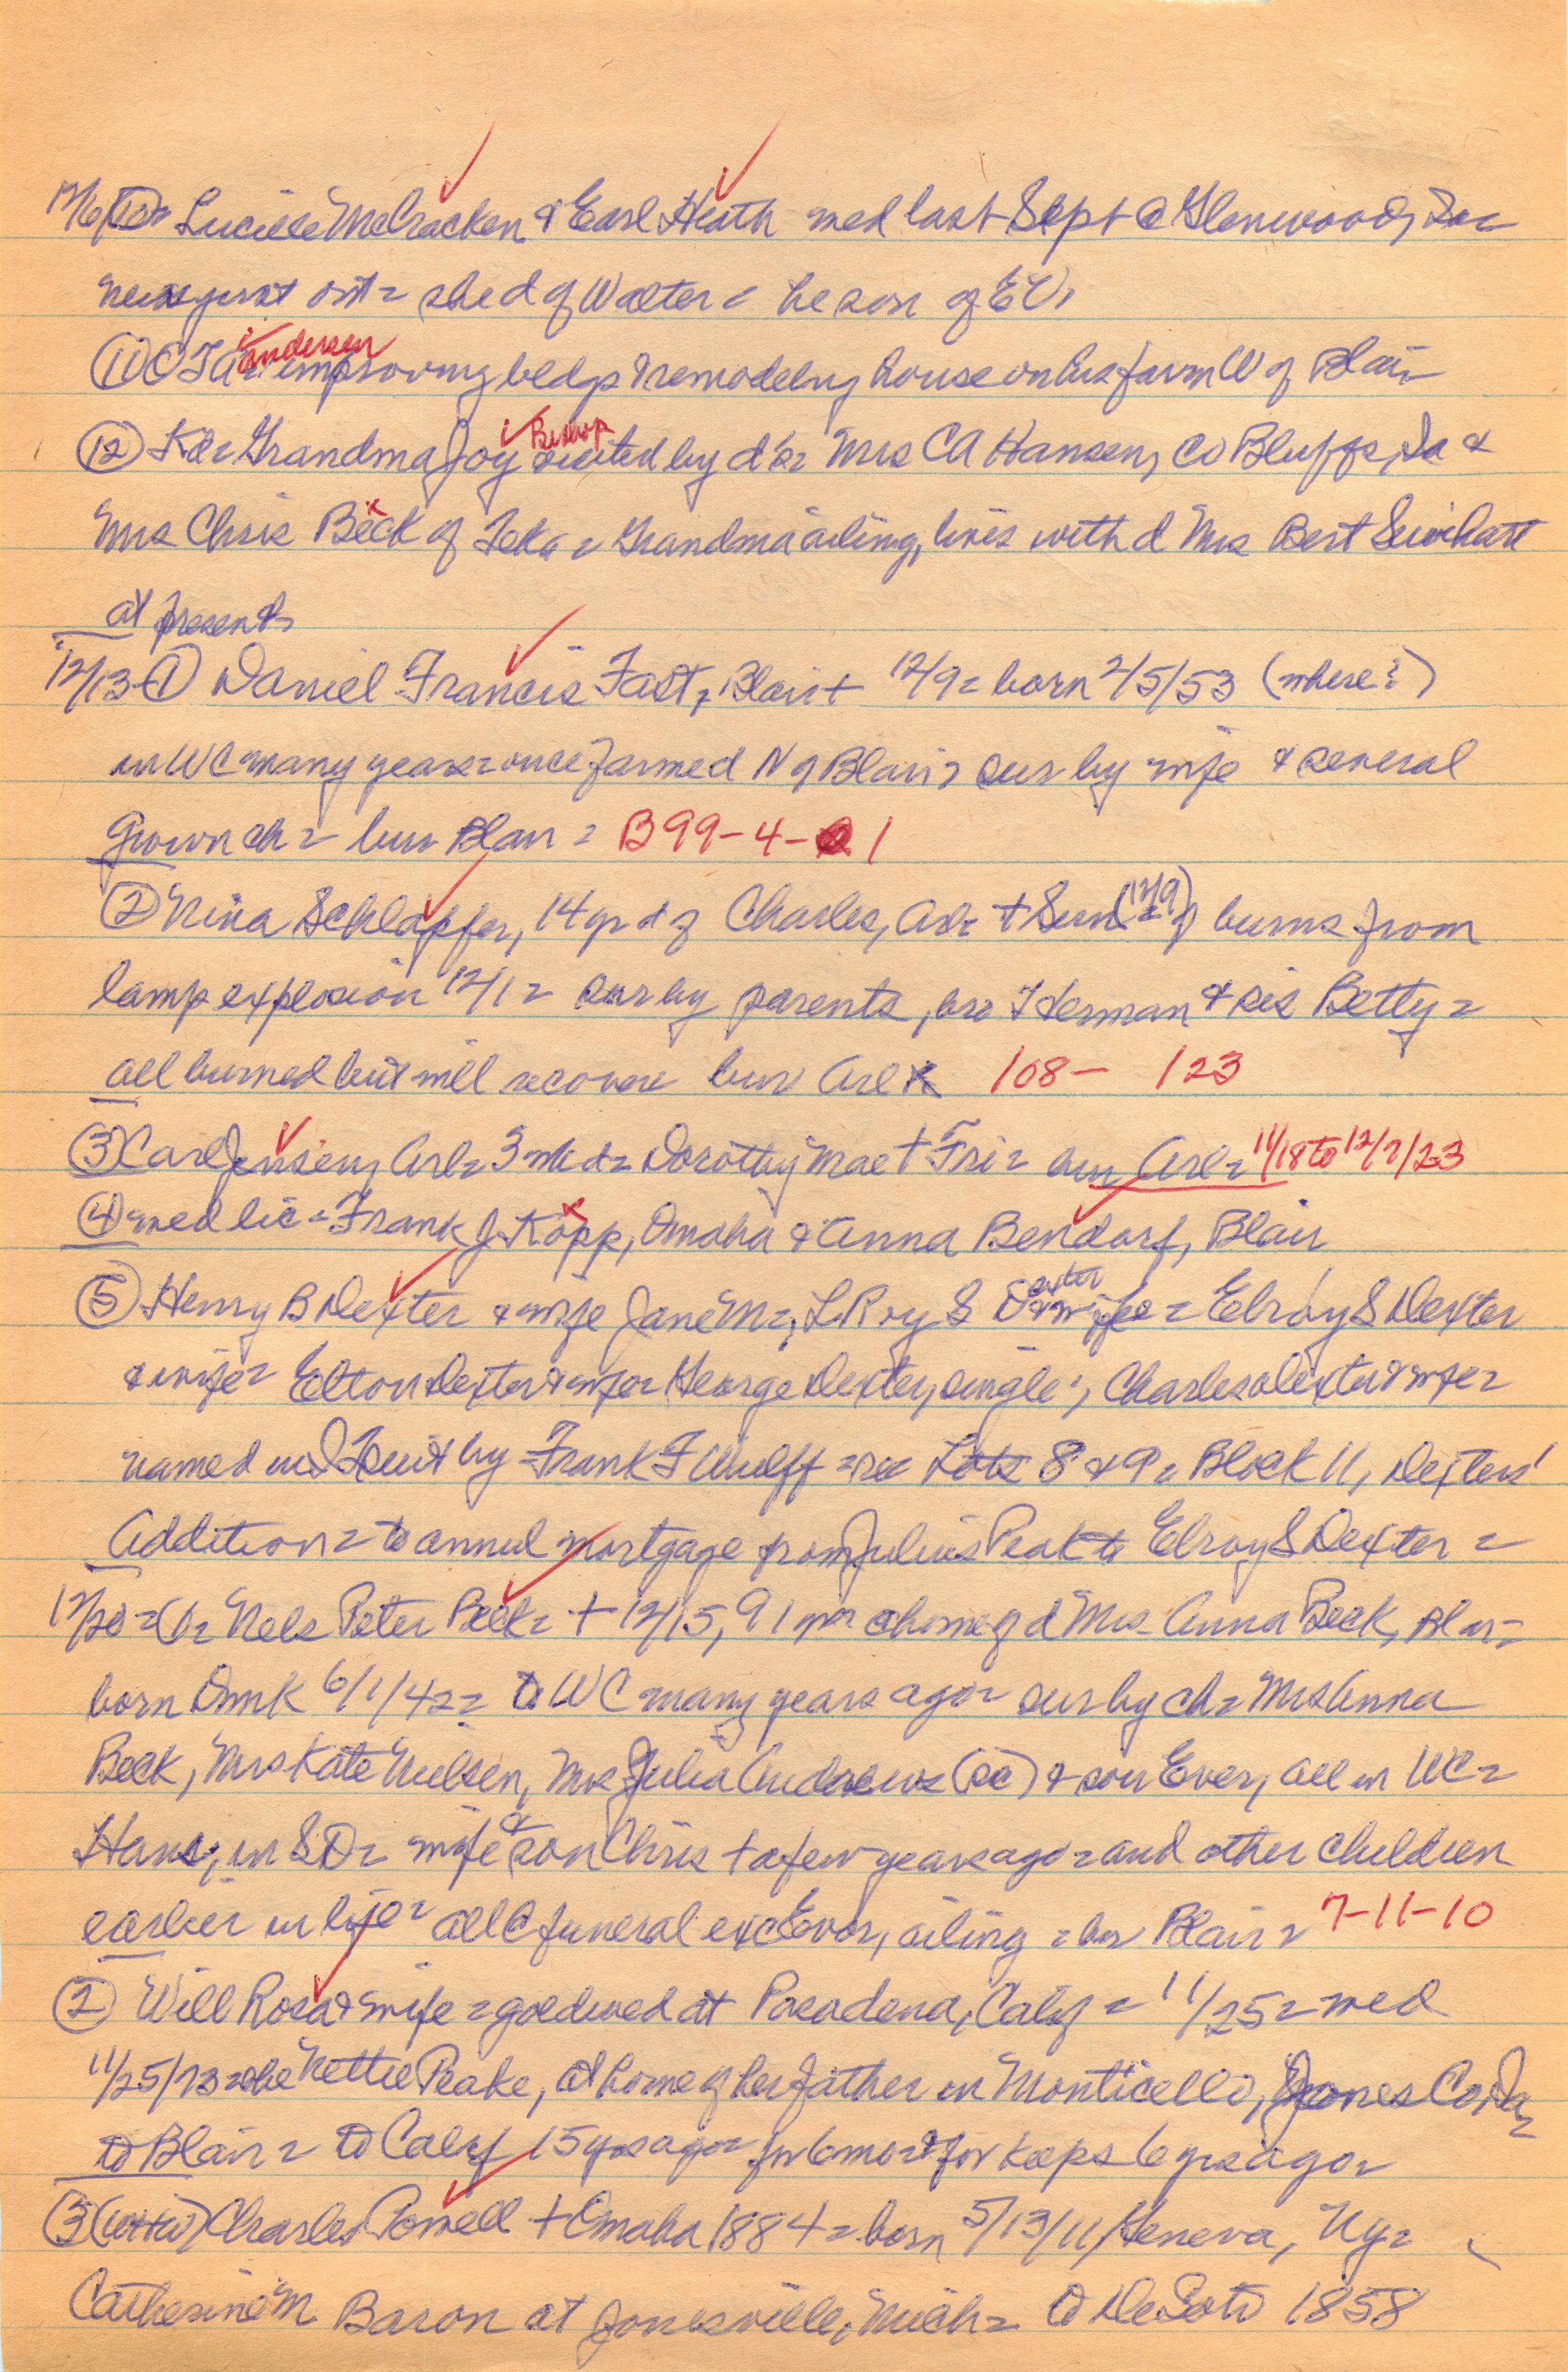 12/6 (10) = Lucille McCracken & Earl Heath med last Sept @ Glenwood, Ia =
news just out = she d of Walter = he son of EV,
(11) C T Andersen improving bldgs & remodeling house on his farm W of Blair
(12) Ka = Grandma Joy Bishop visited by d's = Mrs CA Hansen, Co Bluffs, Ia &
Mrs Chris Beck of Teka = Grandma ailing, lives with d Mrs Bert Swihart
at present
12/13 (1) Daniel Francis Fast, Blair + 12/9 = born 2/5/53 (where?)
in WC many years = once farmed N of Blair = sur by wife & several
grown ch = bur Blair = B99-4-1
(2) Nina Schlapfer, 14 yr d of Charles, Arl = + Sun (12/9) of burns from
lamp explosion 12/1 = sur by parents, bro Herman & sis Betty =
all burned but will recover bur Arl 108- 123
(3) Carl Jensen, Arl = 3 wk d = Dorothy Mae + Fri = bur Arl = 11/18 to 12/7/23
(4) wed lic = Frank J. Kopp, Omaha & Anna Bendorf, Blair
(5) Henry B Dexter & wife Jane M =, L Roy S Dexter & wife = Elroy S Dexter
& wife = Elton Dexter & wife = George Dexter, single; Charles Dexter & wife =
named in suit by Frank F Wulff = re Lots 8 & 9 = Block 11, Dexters'
Addition = to annul mortgage from Julius Peak to Elroy S Dexter =
12/20 = (1) = Nels Peter Beck = + 12/15, 91 yrs @ home of d Mrs Anna Beck, Blair =
born Dnmk 6/1/42 = to WC many years ago = sur by ch = Mrs Anna
Beck, Mrs Kate Nielsen, Mrs Julia Andrews (sc) & son Ever, all in WC =
Hans, in SD = wife & son Chris + a few years ago = and other children
earlier in life = all @ funeral exc Ever, ailing = bur Blair = 7-11-10
(2) Will Rosa & wife = gold wed at Pasadena, Calif = 11/25 = wed
11/25/73 = she Nettie Peake, at home of her father in Monticello, Jones Co, Ia =
to Blair = to Calif 15 yrs ago = for 6 mo = & for keeps 6 yrs ago =
(3) (WHW) Charles Powell + Omaha 1884 = born 5/13/11, Geneva, Ny =
Catherine M Baron at Jonesville, Mich = to DeSoto 1858